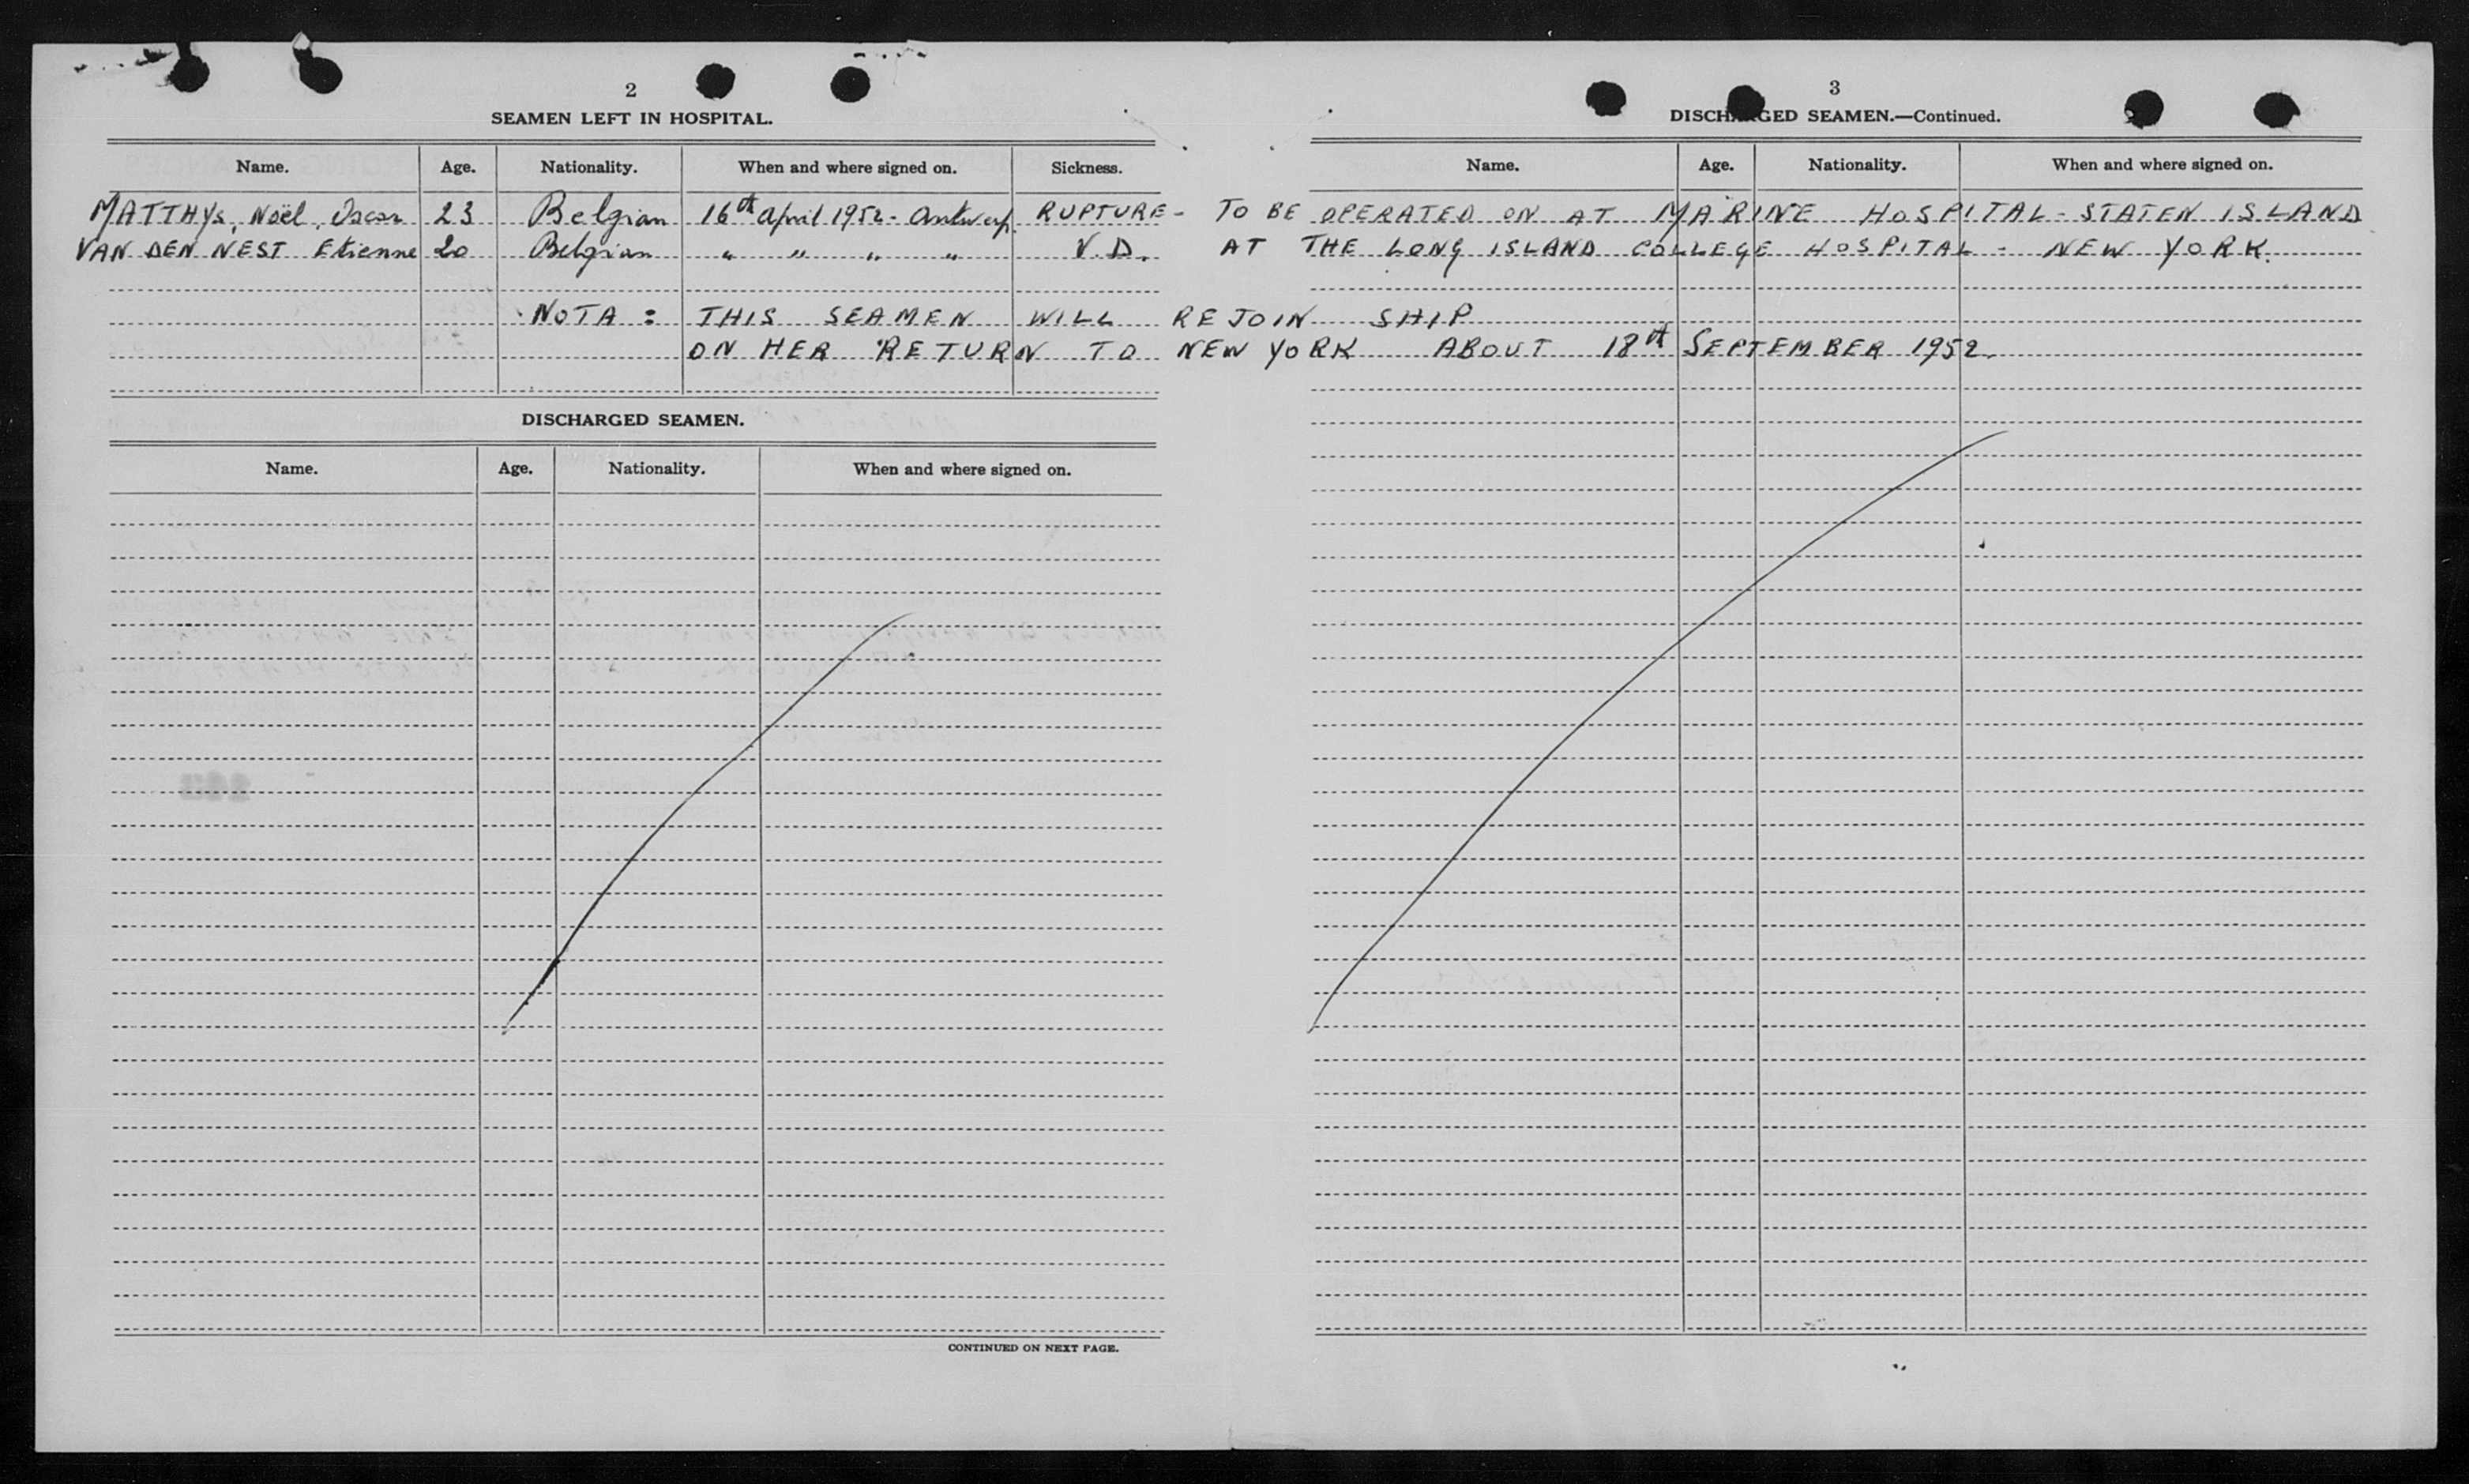 2
SEAMEN LEFT IN HOSPITAL.
Name. Age. Nationality. When and where signed on. Sickness.
MATTHYS, Noël, Oscar 23 Belgian 16th april 1952 - Antwerp. RUPTURE - TO BE OPERATED ON AT MARINE HOSPITAL - STATEN ISLAND
VAN DEN NEST Etienne 20 Belgian " " " " V.D. AT THE LONG ISLAND COLLEGE HOSPITAL - NEW YORK.
NOTA : THIS SEAMEN WILL REJOIN SHIP
ON HER RETURN TO NEW YORK ABOUT 18th SEPTEMBER 1952.
DISCHARGED SEAMEN.
Name. Age. Nationality. When and where signed on.
CONTINUED ON NEXT PAGE.
3
DISCHARGED SEAMEN.—Continued.
Name. Age. Nationality. When and where signed on.